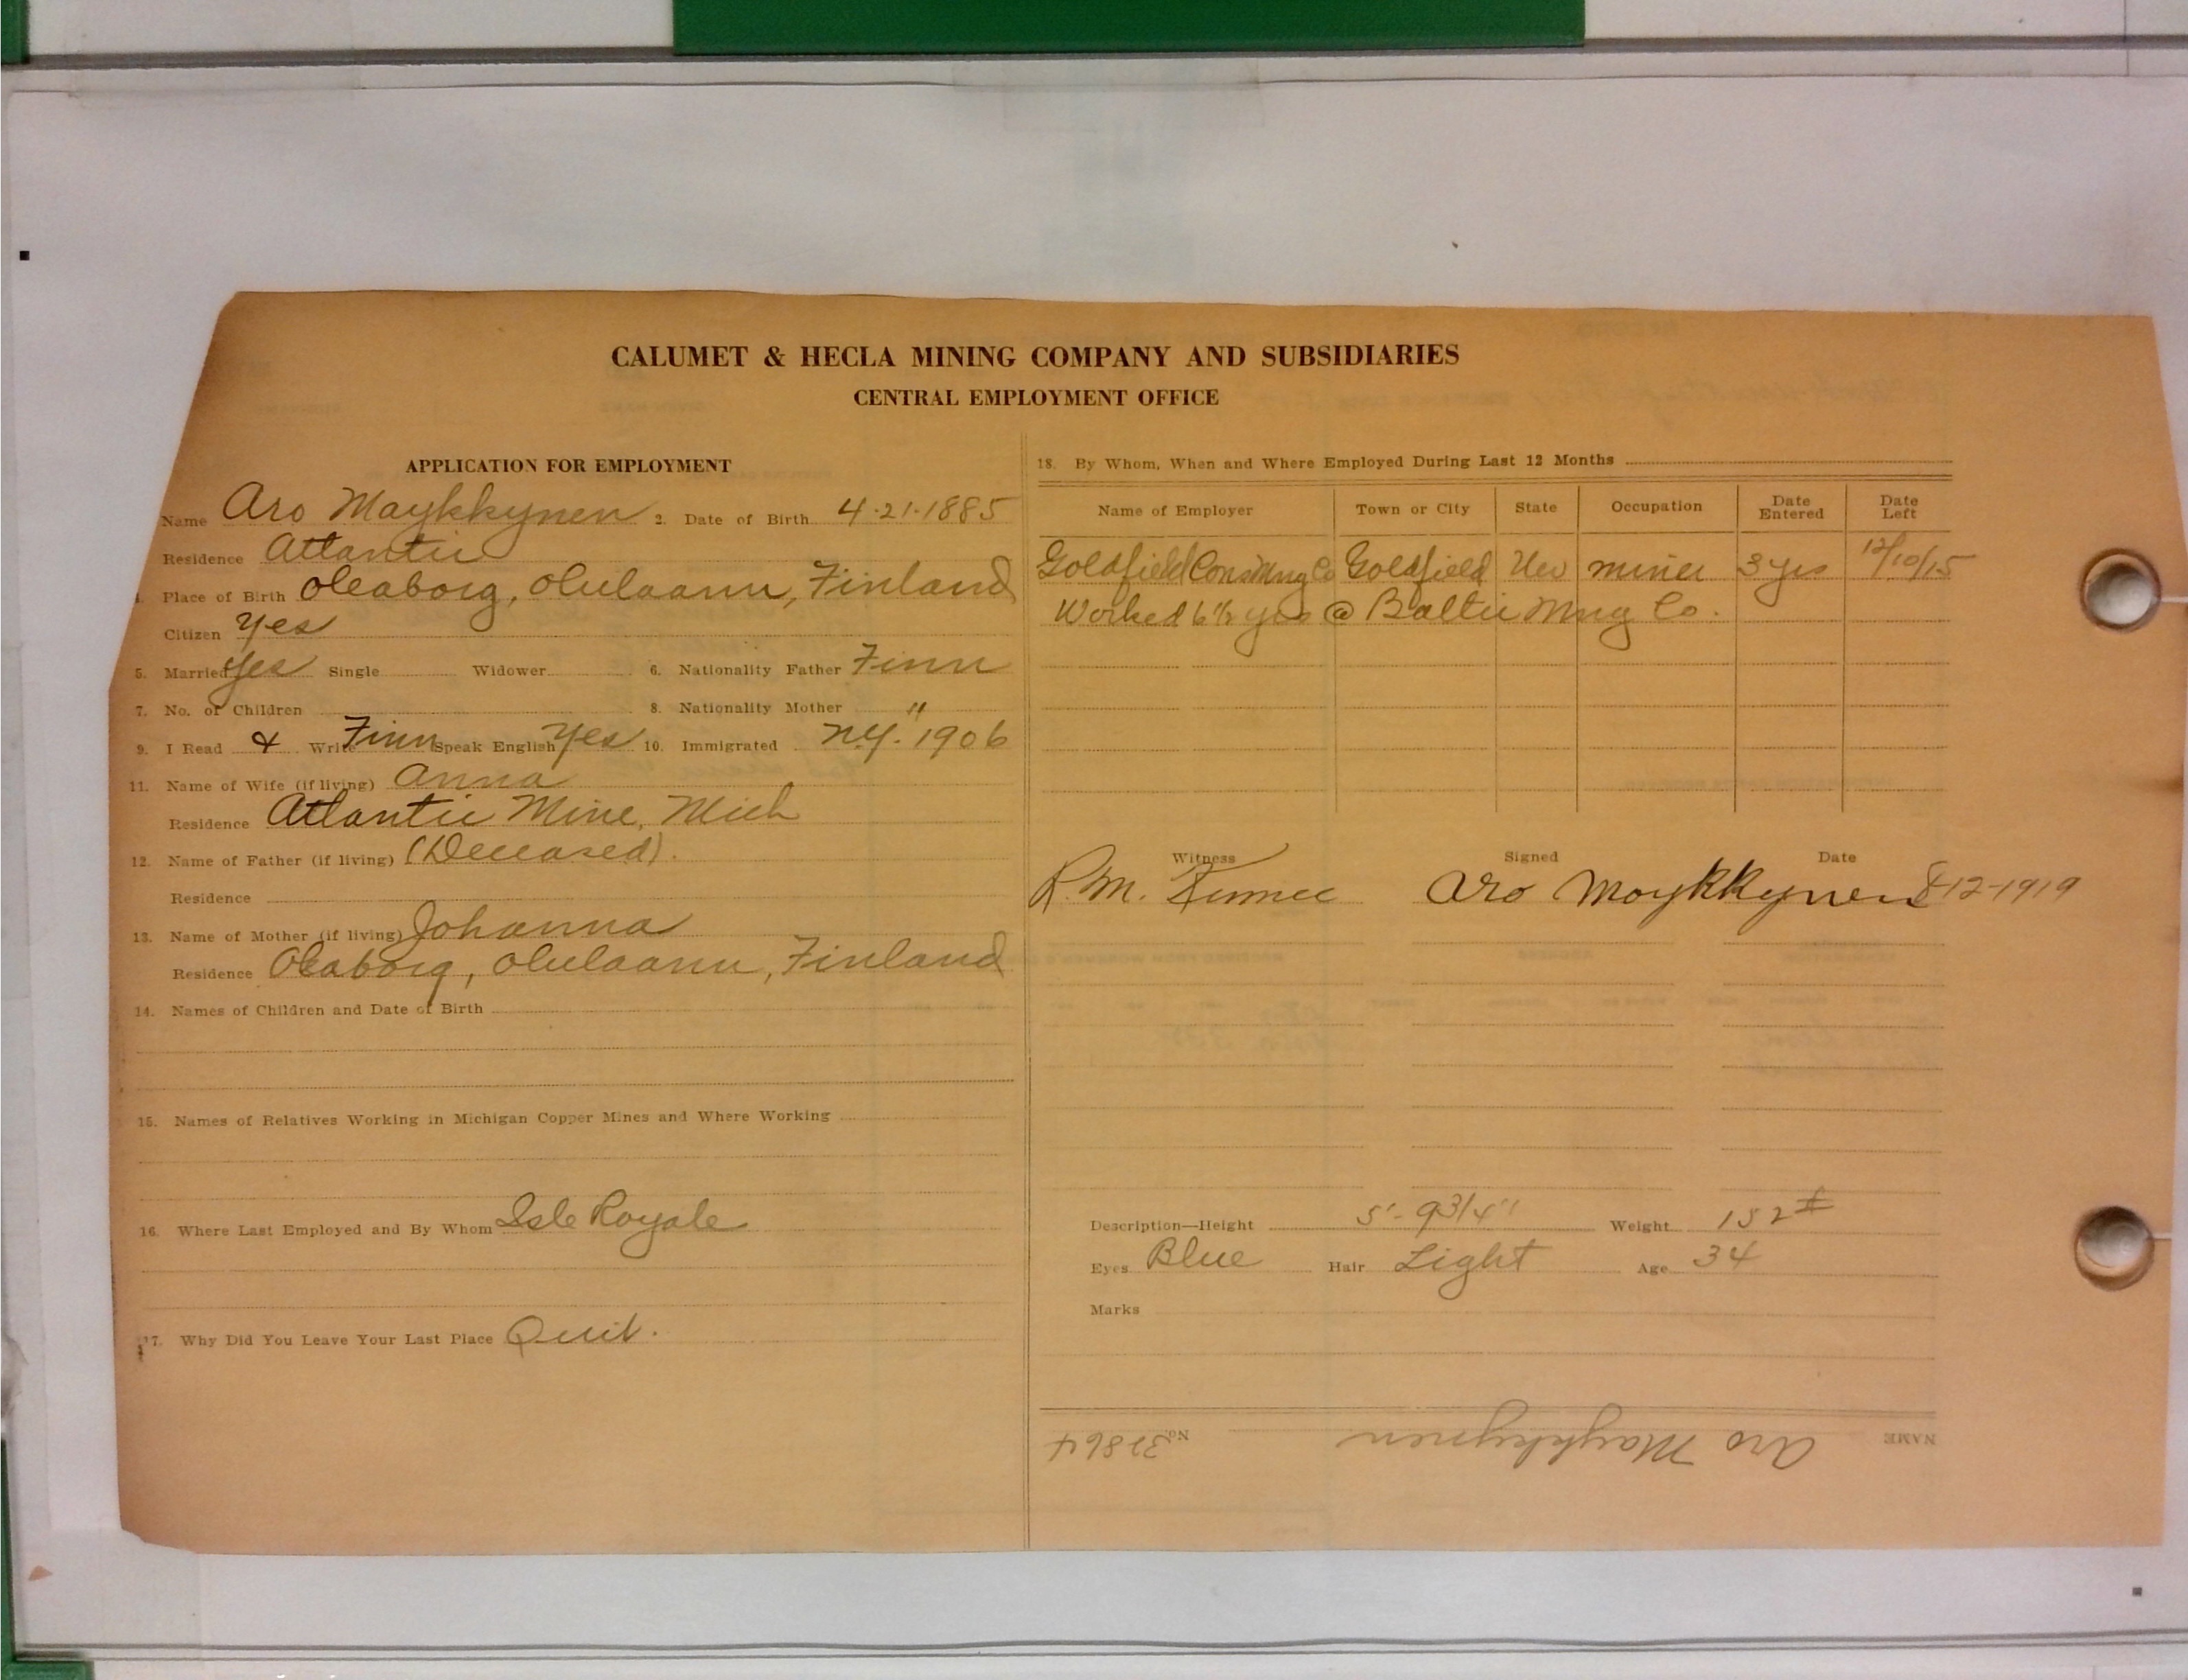 CALUMET & HECLA MINING COMPANY AND SUBSIDIARIES
CENTRAL EMPLOYMENT OFFICE
APPLICATION FOR EMPLOYMENT
Name Aro Maykkynen 2. Date of Birth 4-21-1885
Residence Atlantic
Place of Birth Oleaborg, Olulaanu, Finland
Citizen Yes
5. Married Yes Single Widower 6. Nationality Father Finn
7. No. of Children 8. Nationality Mother "
9. I Read & Write Finn Speak English Yes 10. Immigrated N.Y. 1906
11. Name of Wife (if living) Anna
Residence Atlantic Mine, Mich
12. Name of Father (if living) (Deceased).
Residence
13. Name of Mother (if living) Johanna
Residence Oleaborg, Olulaanu, Finland
14. Names of Children and Date of Birth
15. Names of Relatives Working in Michigan Copper Mines and Where Working
16. Where Last Employed and By Whom Isle Royale
17. Why Did You Leave Your Last Place Quit.
18. By Whom, When and Where Employed During Last 12 Months
Name of Employer Town or City State Occupation Date Entered Date Left
Goldfield Cons Mng Co Goldfield Nev miner 3 yrs 12/10/15
Worked 6 1/2 yrs @ Baltic Mng Co.
Witness Signed Date
R. M. Aro Moykkynen 8-12-1919
Description—Height 5'-9 3/4" Weight 152#
Eyes Blue Hair Light Age 34
Marks
NAME Aro Maykkynen No. 32864